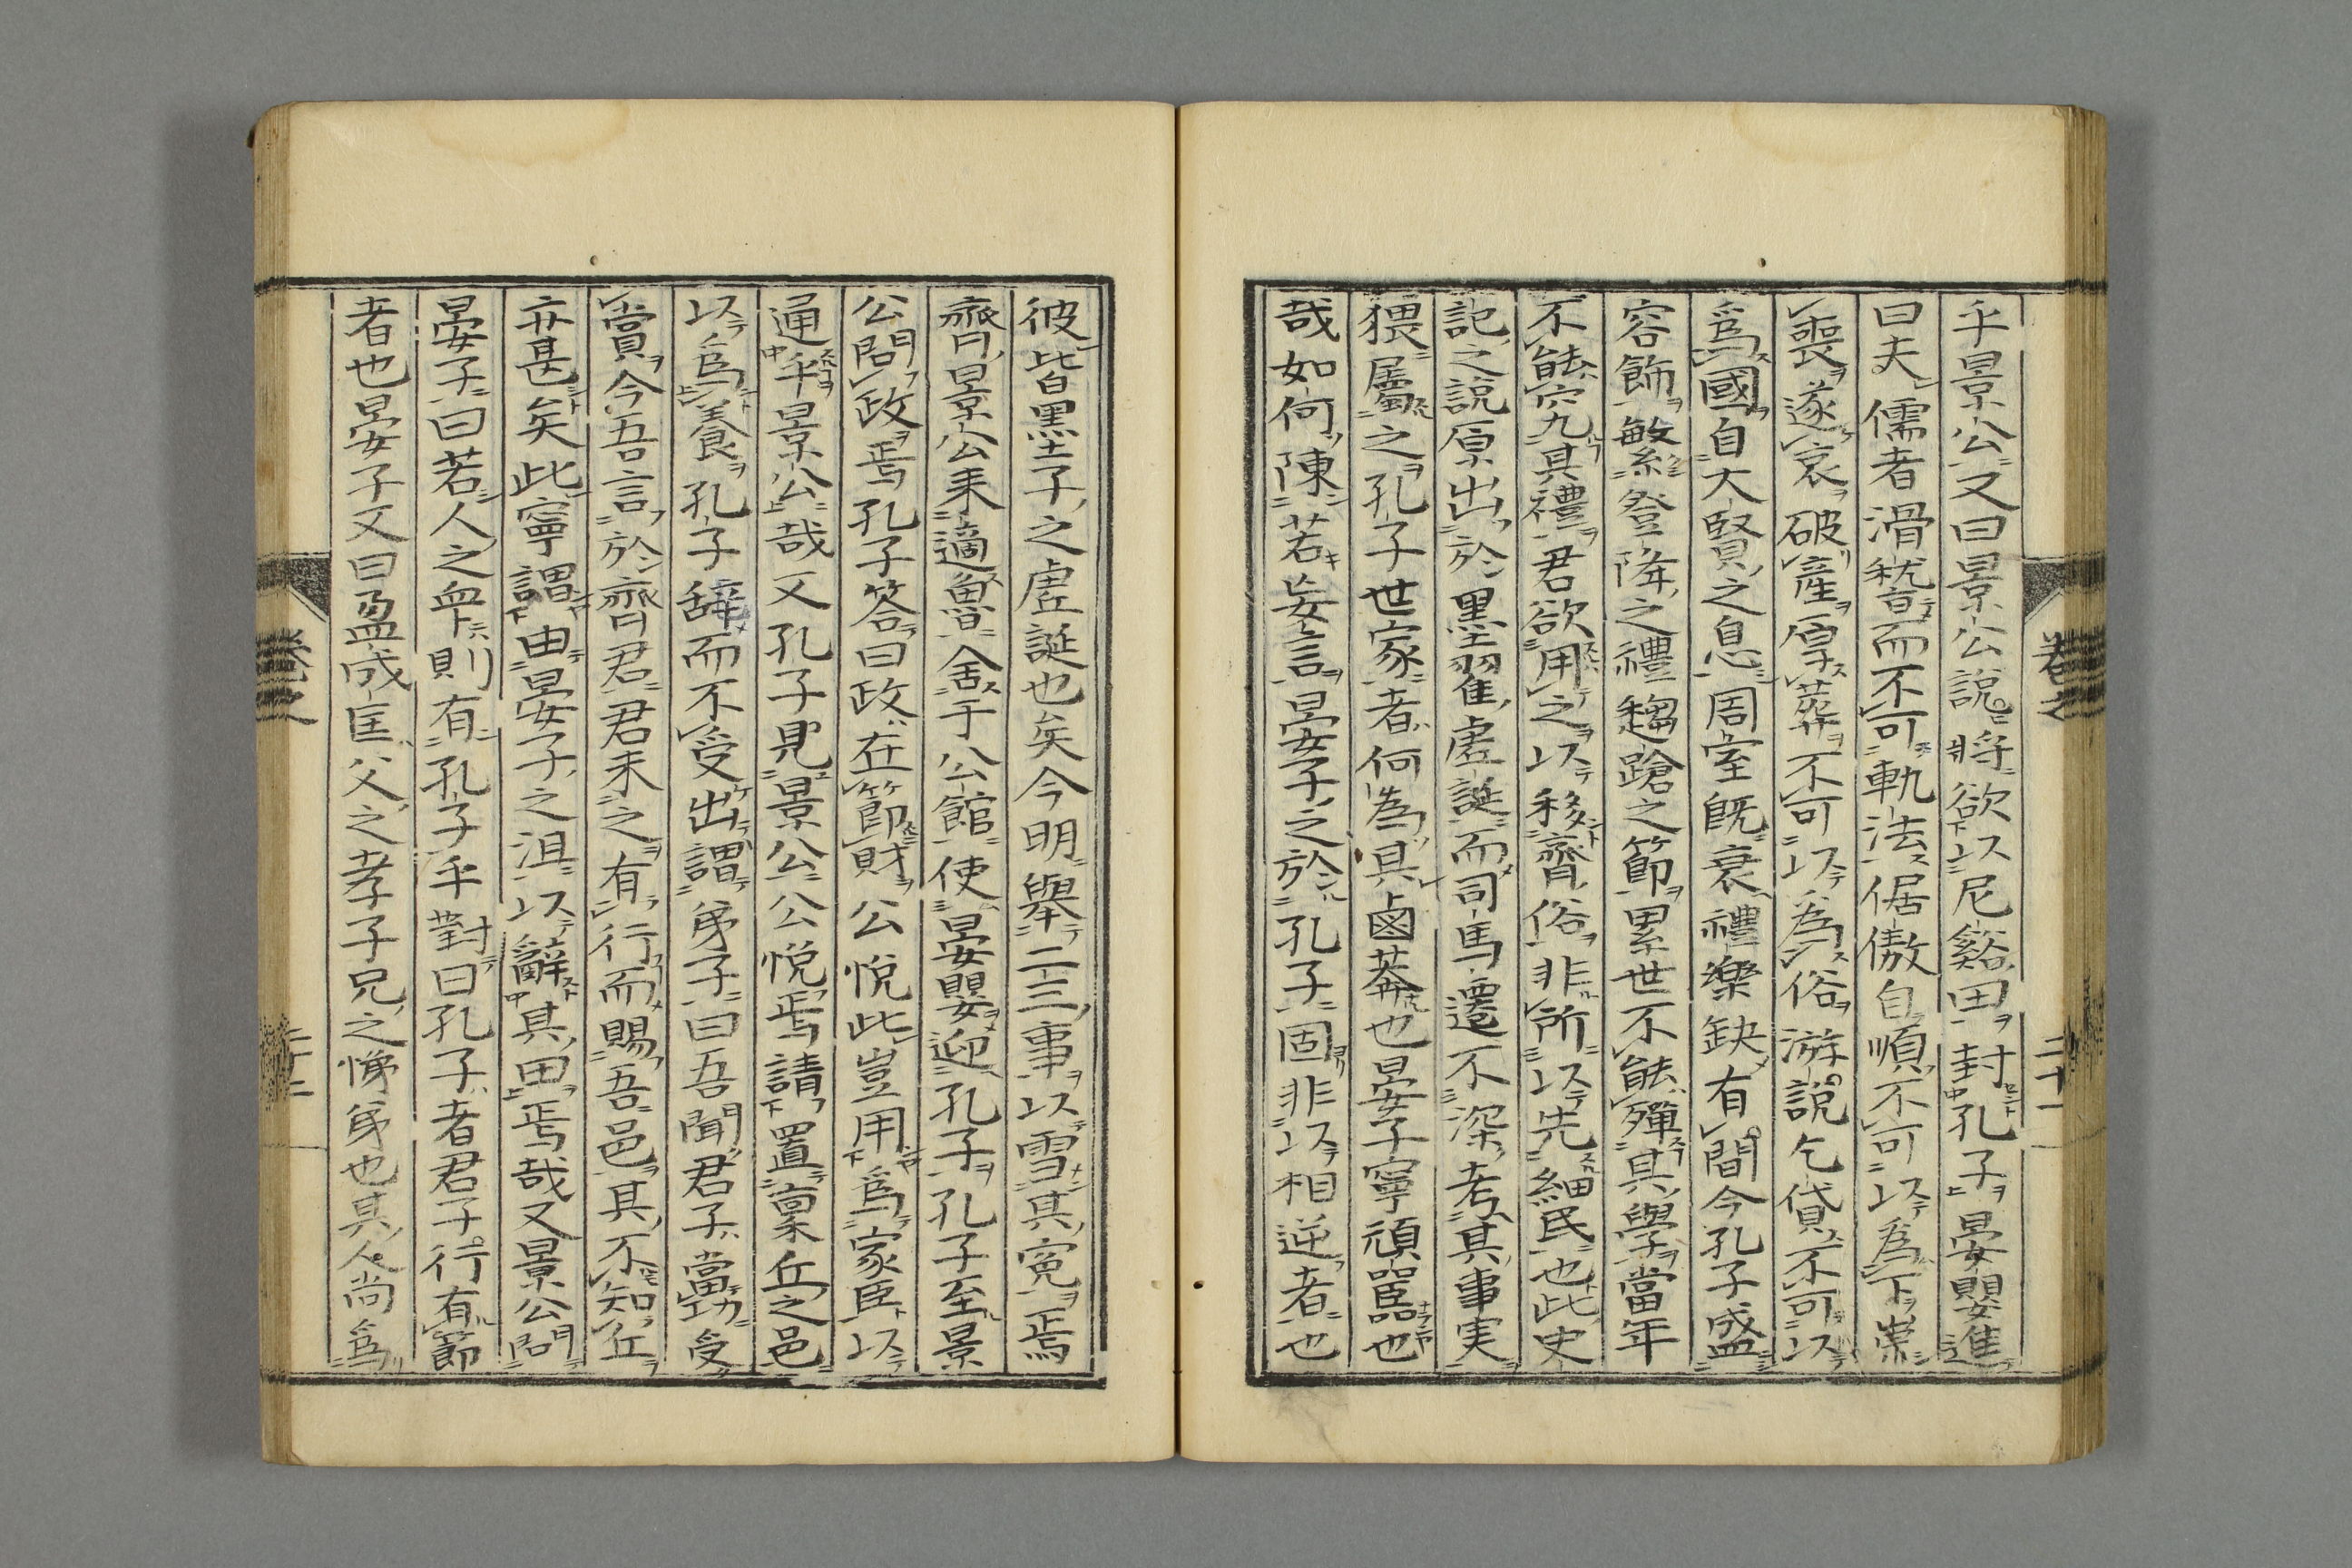 乎景公又曰景公說將欲以尼谿田封孔子晏嬰進
曰夫儒者滑稽而不可軌法倨傲自順不可以為下崇
喪遂哀破產厚葬不可以為俗游說乞貸不可以
爲國自大賢之息周室既衰禮樂缺有間今孔子盛
容飾繁登降之禮趨蹌之節累世不能殫其學當年
不能究其禮君欲用之以移齊俗非所以先細民也此史
記之說原出於墨翟虛誕而司馬遷不深考其事実
猥屬之孔子世家者何為其鹵莽也晏子寧頑嚚也
哉如何陳若妄言晏子之於孔子固非以相逆者也
彼皆墨子之虛誕也矣今明舉二三事以雪其冤焉
齊景公来適魯舍于公館使晏嬰迎孔子孔子至景
公問政焉孔子答曰政在節財公悅此豈用爲家臣以
通乎景公哉又孔子見景公公悅焉請置稟丘之邑
以爲養孔子辭而不受出謂弟子曰吾聞君子當功受
賞今吾言於齊君君未之有行而賜吾邑其不知丘
亦甚矣此寧謂由晏子之沮以辭其田焉哉又景公問
晏子曰若人之眾則有孔子乎對曰孔子者君子行有節
者也晏子又曰盈成匡父之孝子兄之悌弟也其人尚爲
卷之
二十一
卷之
二十二